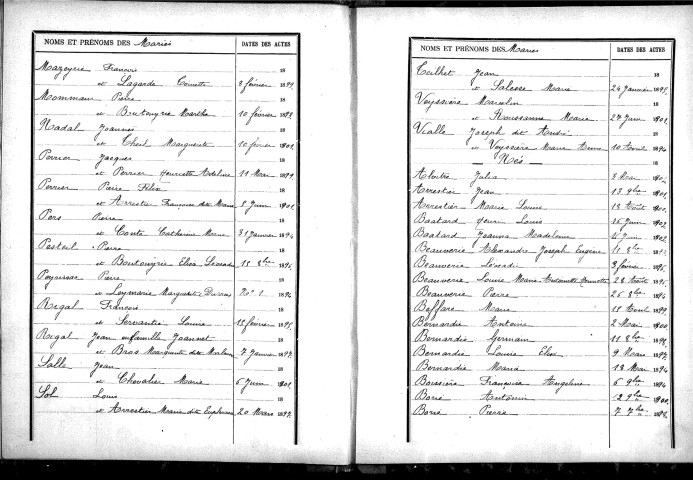 NOMS ET PRÉNOMS DES Mariés DATES DES ACTES
Mazeyrie François 18
et Lagarde 8 février 1899
Pierre 18
et Boutonyrie Marthe 10 février 1899
Nadal Joannès 18
et Marguerite 10 février 1901
Perrier Jacques 18
et Perrier Henriette Adeline 11 Mai 1899
Perrier Pierre Félix 18
et Arrestier Françoise dite Maria 8 Juin 1901
Pers Pierre 18
et Conte Catherine Marie 31 Janvier 1894
Pesteil Pierre 18
et Boutonyrie Elisa 15 8bre 1895
Peyrissac Pierre 18
et Leymarie Marguerite 1894
Rigal François 18
et Servantie Louise 18 février 1895
Rigal Jean Joannet 18
et Bros Marguerite dite 7 Janvier 1897
Salle Jean 18
et Chevalier Marie 6 Juin 1901
Sol Louis 18
et Arrestier Marie dite 20 Mars 1899
NOMS ET PRÉNOMS DES Mariés DATES DES ACTES
Teilhet Jean 18
et Salesse Marie 24 Janvier 1895
Veyssière Marcelin 18
et Roussanne Marie 27 Juin 1901
Vialle Joseph dit André 18
et Veyssière Marie Anna 10 Août 1894
— Nés — 18
Julia 8 Mai 1902
Arrestier Jean 13 9bre 1901
Arrestier Marie Louise 18 Août 1900
Bastard Henri Louis 26 Juin 1902
Bastard Jeanne Madeleine
Beauverie Alexandre Joseph Eugène 11 8bre
Beauverie 3 février 1895
Beauverie Louise Marie Antoinette 28 Août 1895
Beauverie Pierre 25 8bre 1894
Beffare Marie 18 Août 1899
Bernardie Antoine 2 Mai 1900
Bernardie Germain 11 8bre 1898
Bernardie Louise Elise 9 Mars 1897
Bernardie Maria 18 Mai 1894
Boissière Françoise Angeline 6 9bre 1894
Borie Antonin 12 9bre 1900
Borie Pierre 7 7bre 1898